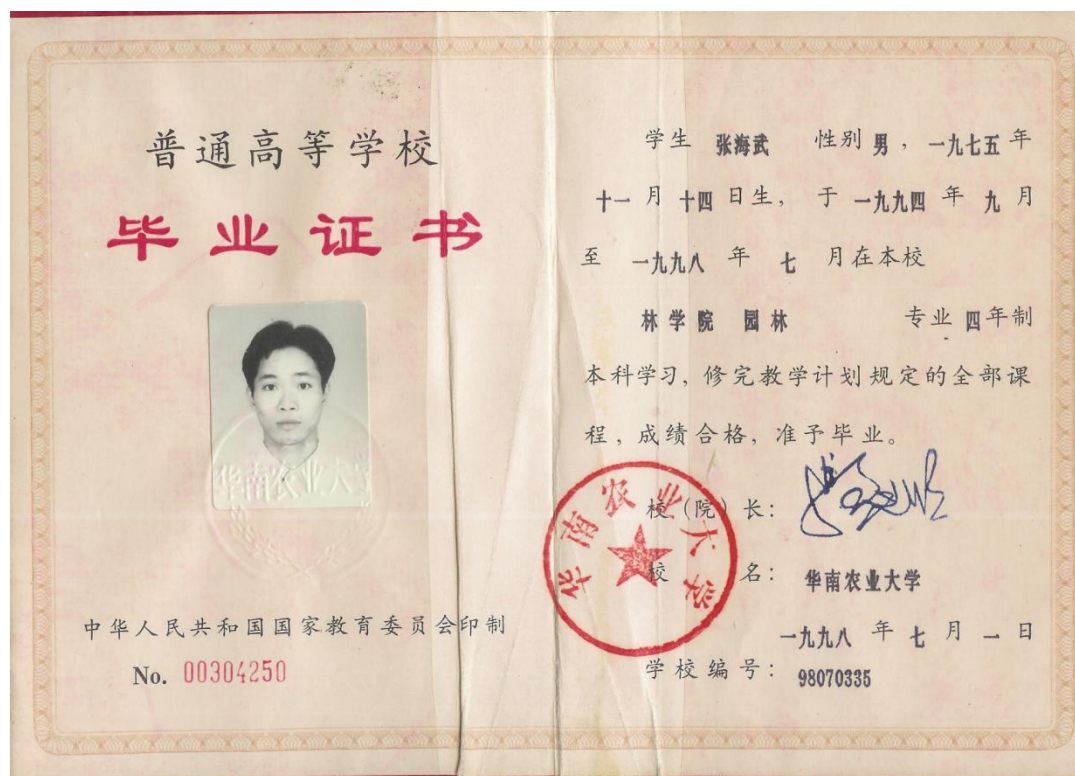 普通高等学校
毕业证书
华南农业大学
中华人民共和国国家教育委员会印制
No. 00304250
学生 张海武 性别 男，一九七五年
十一月十四日生，于一九九四年九月
至一九九八年七月在本校
林学院 园林 专业四年制
本科学习，修完教学计划规定的全部课
程，成绩合格，准予毕业。
校（院）长：
校名：华南农业大学
华南农业大学
一九九八年七月一日
学校编号：98070335